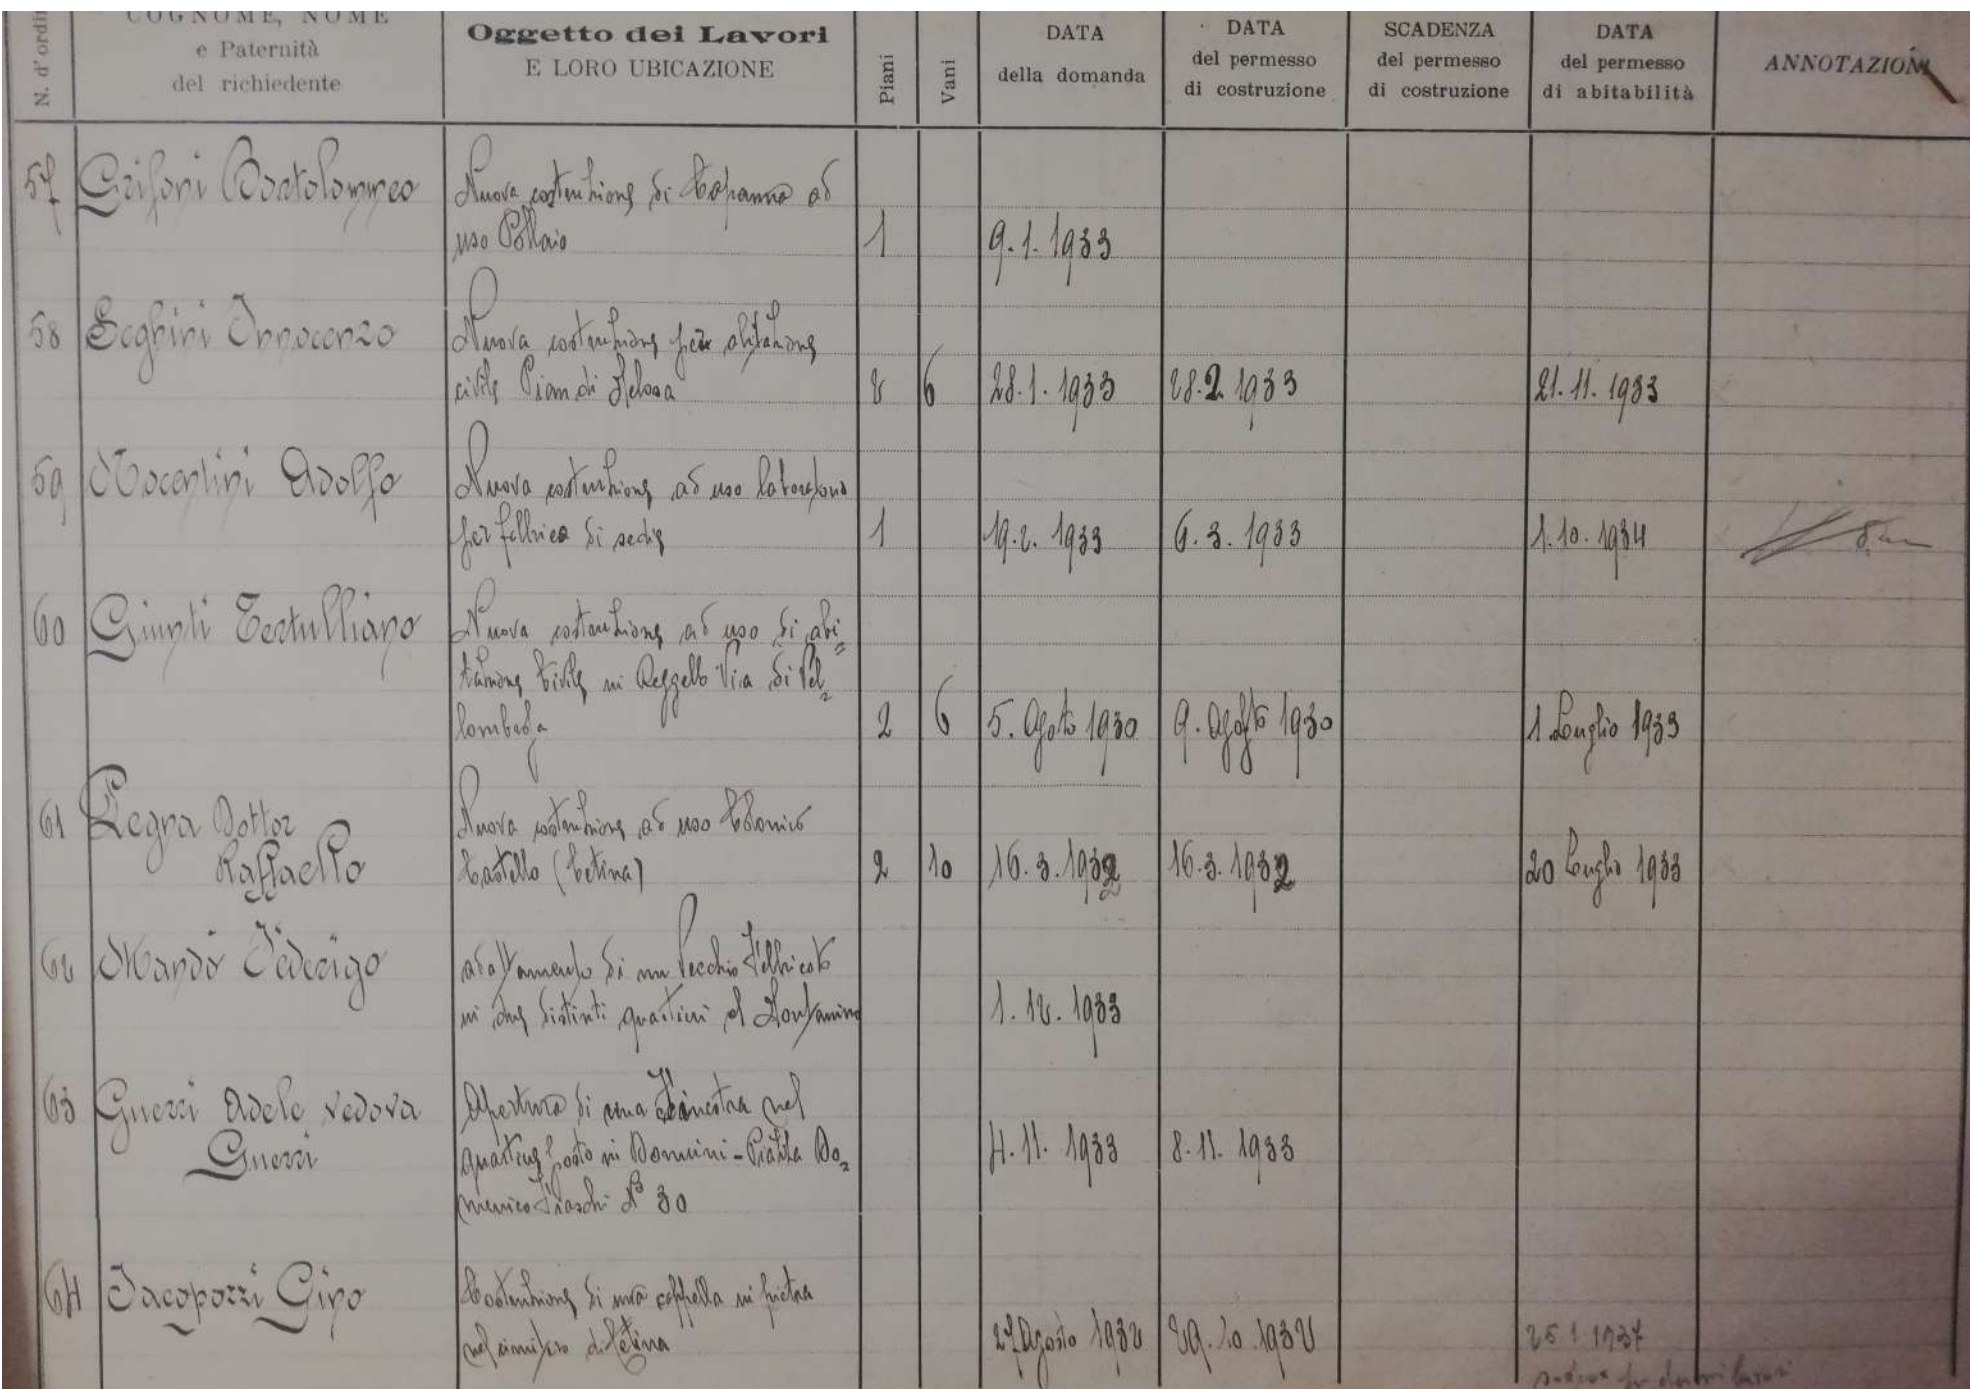 N. d'ordi
COGNOME, NOME
e Paternità
del richiedente
Oggetto dei Lavori
E LORO UBICAZIONE
Piani
Vani
DATA
della domanda
DATA
del permesso
di costruzione
SCADENZA
del permesso
di costruzione
DATA
del permesso
di abitabilità
ANNOTAZIONI
57 Grifoni Bartolommeo
Nuova costruzione di Capanna ad
uso Pollaio 1 9.1.1933
58 Seghini Innocenzo
Nuova costruzione per abitazione
civile Pian di 2 6 28.1.1933 28.2.1933 21.11.1933
59 Nocentini Adolfo
Nuova costruzione ad uso laboratorio
per fabbrica di sedie 1 19.2.1933 6.3.1933 1.10.1934
60 Giunti Tertulliano
Nuova costruzione ad uso di abi=
tazione Civile in Reggello Via di Val=
lombrosa 2 6 5. Agosto 1930 9. Agosto 1930 1 Luglio 1933
61 Legna Dottor
Raffaello
Nuova costruzione ad uso Colonico
Castello (Cetina) 2 10 16.3.1932 16.3.1932 20 Luglio 1933
62 Nardi Federigo
adattamento di un Vecchio Fabbricato
in due distinti quartieri al Montanino 1.12.1933
63 Guerri Adele vedova
Guerri
Apertura di una Finestra nel
quartiere posto in Donnini - Piazza Do= 4.11.1933 8.11.1933
menico Fraschi N° 30
64 Jacopozzi Gino
Costruzione di una cappella in pietra
nel cimitero di Cetina 27 Agosto 1932 29.10.1932 25.1.1937